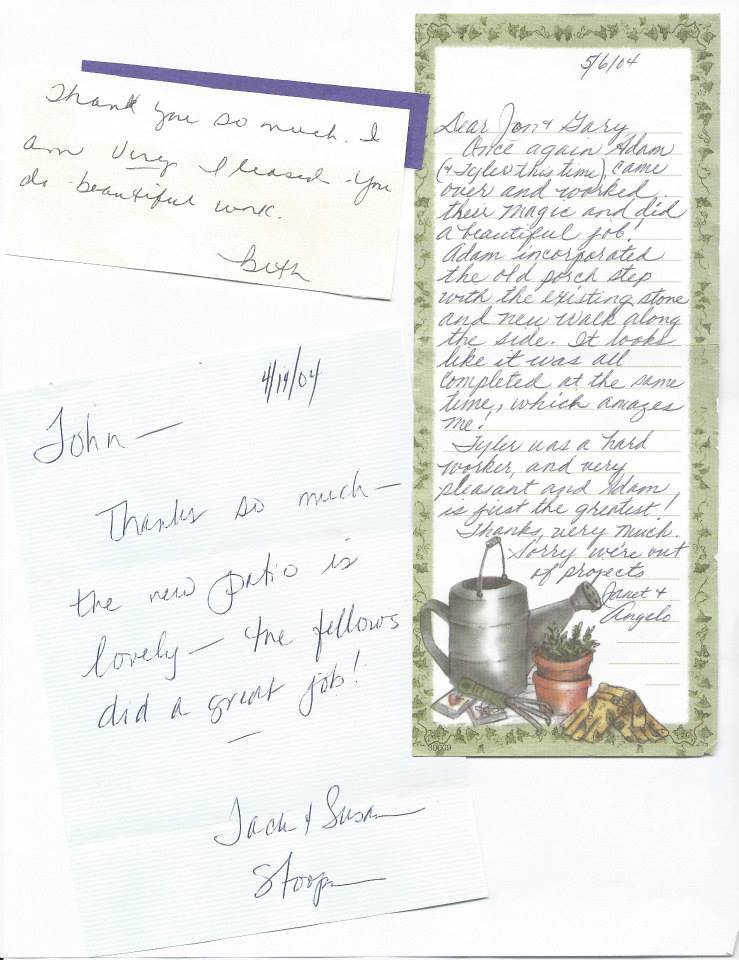 Thank you so much. I
am very pleased - you
do beautiful work.
Beth
4/19/04
John —
Thanks so much —
the new patio is
lovely — the fellows
did a great job!
Jack & Susan
Stoop
5/6/04
Dear Jon & Gary,
Once again Adam
(& Tyler this time), came
over and worked
their magic and did
a beautiful job!
Adam incorporated
the old porch step
with the existing stone
and new walk along
the side. It looks
like it was all
completed at the same
time, which amazes
me!
Tyler was a hard
worker, and very
pleasant and Adam
is just the greatest!
Thanks, very much.
Sorry we're out
of projects
Janet &
Angelo
30009